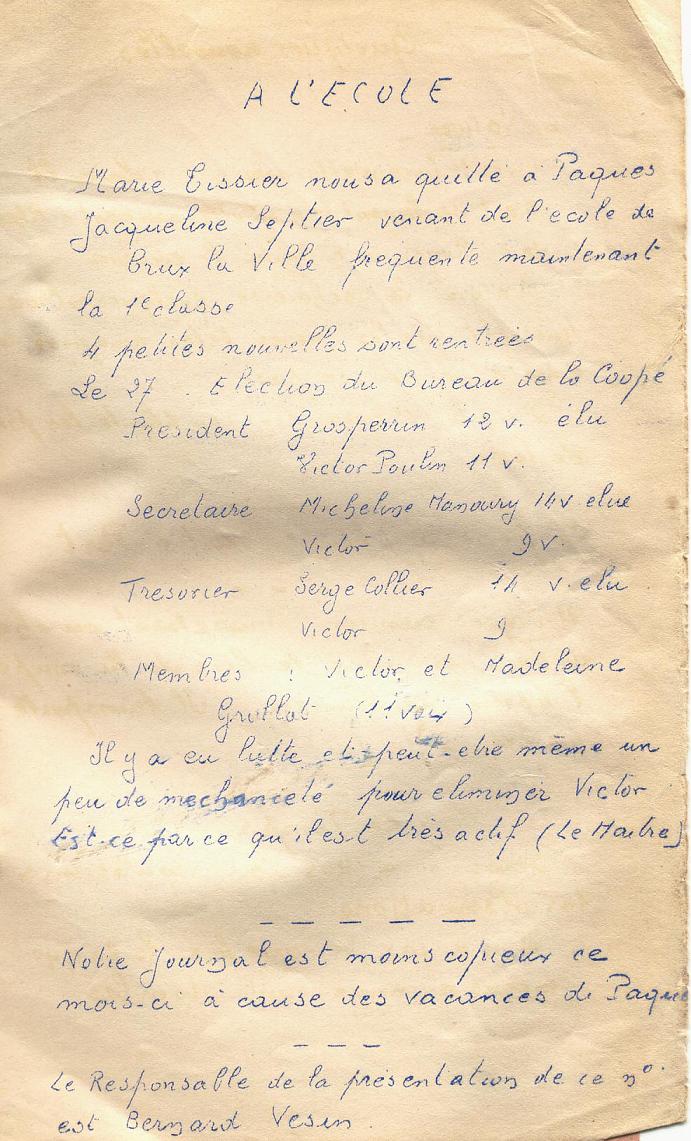 A L'ECOLE
Marie Tissier nous a quitté à Paques
Jacqueline Septier venant de l'ecole de
Crux la Ville frequente maintenant
la 1e classe
4 petites nouvelles sont rentrées
Le 27. Election du Bureau de la Coopé
President Grosperrin 12 v. élu
Victor Poulin 11 v.
Secretaire Micheline Manoury 14 v elue
Victor 9 v.
Tresorier Serge Collier 14 v. elu
Victor 9
Membres : Victor et Madeleine
Grollot (11 voix)
Il y a eu lutte et peut-etre même un
peu de mechanceté pour eliminer Victor
Est-ce parce qu'il est très actif (Le Maitre)
_ _ _ _ _
Notre Journal est moins copieux ce
mois-ci à cause des vacances de Paques
_ _ _
Le Responsable de la présentation de ce n°
est Bernard Vesin.